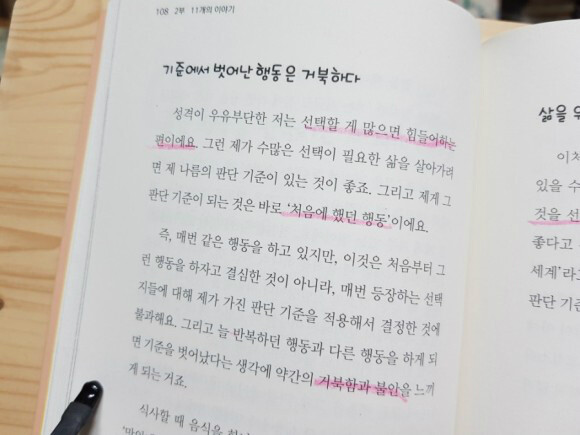 108 2부 11개의 이야기
기준에서 벗어난 행동은 거북하다
성격이 우유부단한 저는 선택할 게 많으면 힘들어하는
편이에요. 그런 제가 수많은 선택이 필요한 삶을 살아가려
면 제 나름의 판단 기준이 있는 것이 좋죠. 그리고 제게 그
판단 기준이 되는 것은 바로 ‘처음에 했던 행동’이에요.
즉, 매번 같은 행동을 하고 있지만, 이것은 처음부터 그
런 행동을 하자고 결심한 것이 아니라, 매번 등장하는 선택
지들에 대해 제가 가진 판단 기준을 적용해서 결정한 것에
불과해요. 그리고 늘 반복하던 행동과 다른 행동을 하게 되
면 기준을 벗어났다는 생각에 약간의 거북함과 불안을 느끼
게 되는 거죠.
식사할 때 음식을
삶을
이처
있을 수
것을 선
좋다고
세계’라고
판단 기준